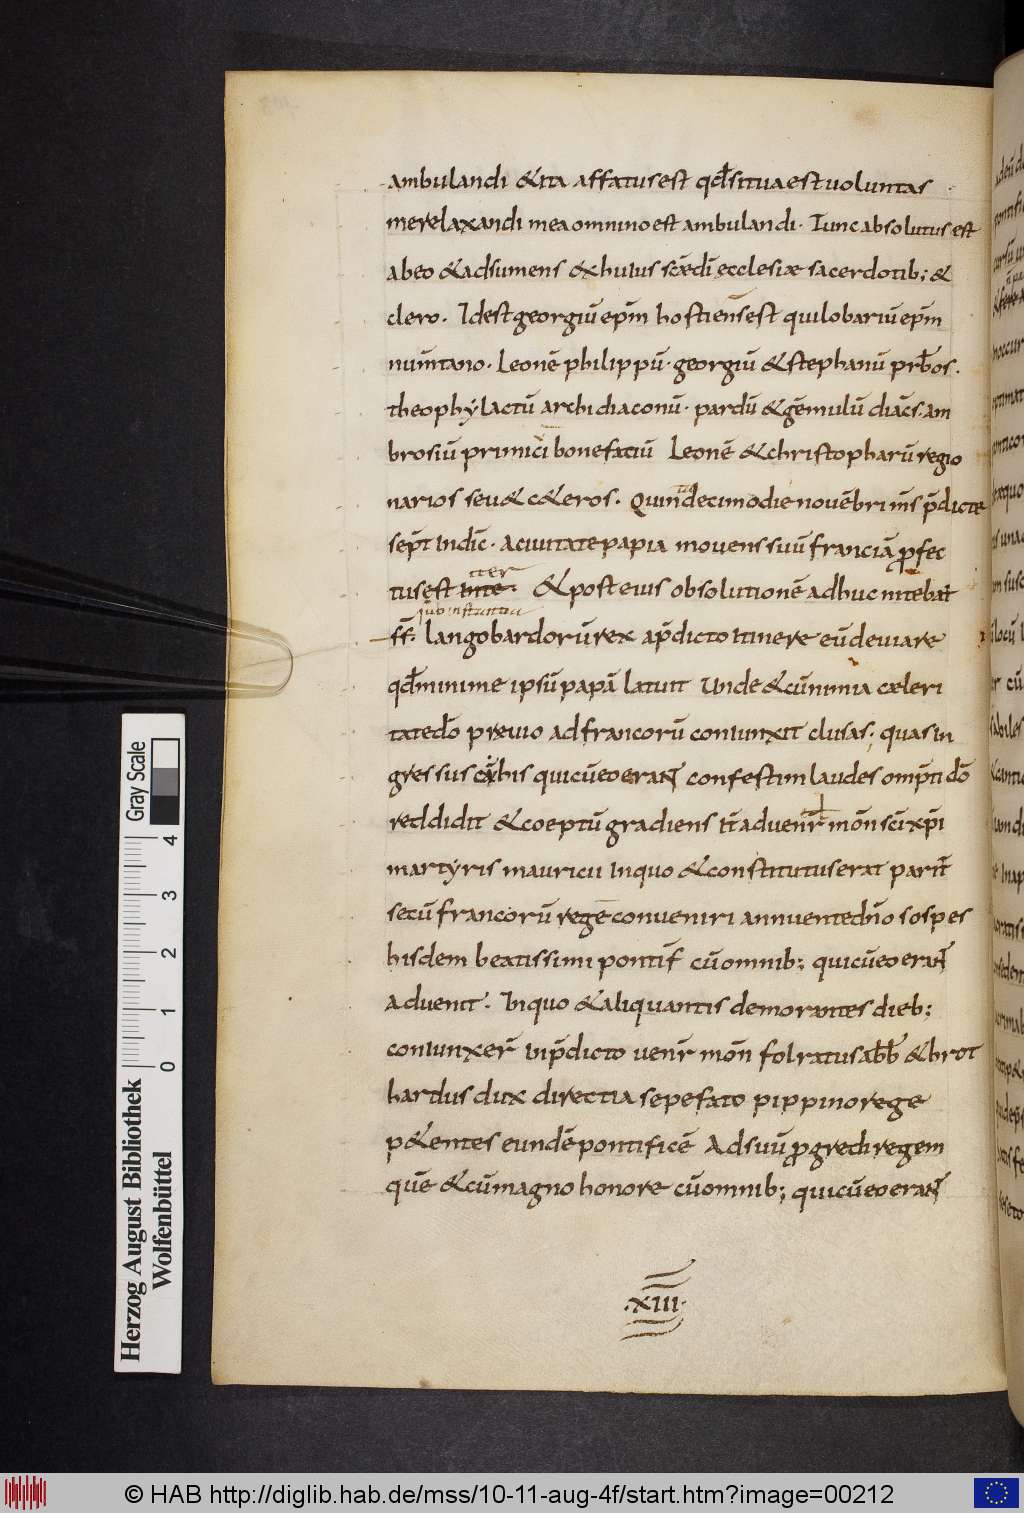 ambulandi &ita affatus est qđ si tua est uoluntas
me relaxandi mea omnino est ambulandi. Tunc absolutus est
ab eo & adsumens ex huius scae dī ecclesiae sacerdotib; &
clero. Id est georgiū ep̄m hostiensest quilobariū ep̄m
num̄tano. Leonē philippū. georgiū & stephanū prb̄os.
theophylactū archidiaconū. pardū & gēmulū diac̄s. am
brosiū primici bonefatiū Leonē & christopharū regio
narios seu & c&eros. Quinto decimo die nouēbri m̄s p̄dicte
sep̄t Indic̄. A ciuitate papia mouens suū franciā profec
tus est inte. iter & post eius obsolutionē adhuc nitebat
ff. sub instantia Langobardorū rex a p̄dicto itinere eū deuiare
qđ minime ipsū papā latuit Unde & cū nimia caeleri
tate dō preuio ad francorū coniunxit clusas; quas in
gressus cābis qui cū eo erant confestim laudes omp̄ti dō
reddidit & coeptū gradiens it̄ ad uen̄r mōn scī xp̄i
martyris mauricii In quo & constitutus erat parit̄
se cū francorū rege conueniri annuente dn̄o sospes
hisdem beatissimi pontif̄ cū omnib; qui cū eo erant
aduenit. In quo & aliquantis demorantes dieb;
coniunxer̄ in p̄dicto uen̄r mōn folratus abb̄ & hrot
hardus dux directi a sepefato pippino rege
p&entes eundē pontificē Ad suū progredi regem
quē & cū magno honore cū omnib; qui cū eo erant
.XIII.
Herzog August Bibliothek
Wolfenbüttel
Gray Scale
0 1 2 3 4
© HAB http://diglib.hab.de/mss/10-11-aug-4f/start.htm?image=00212